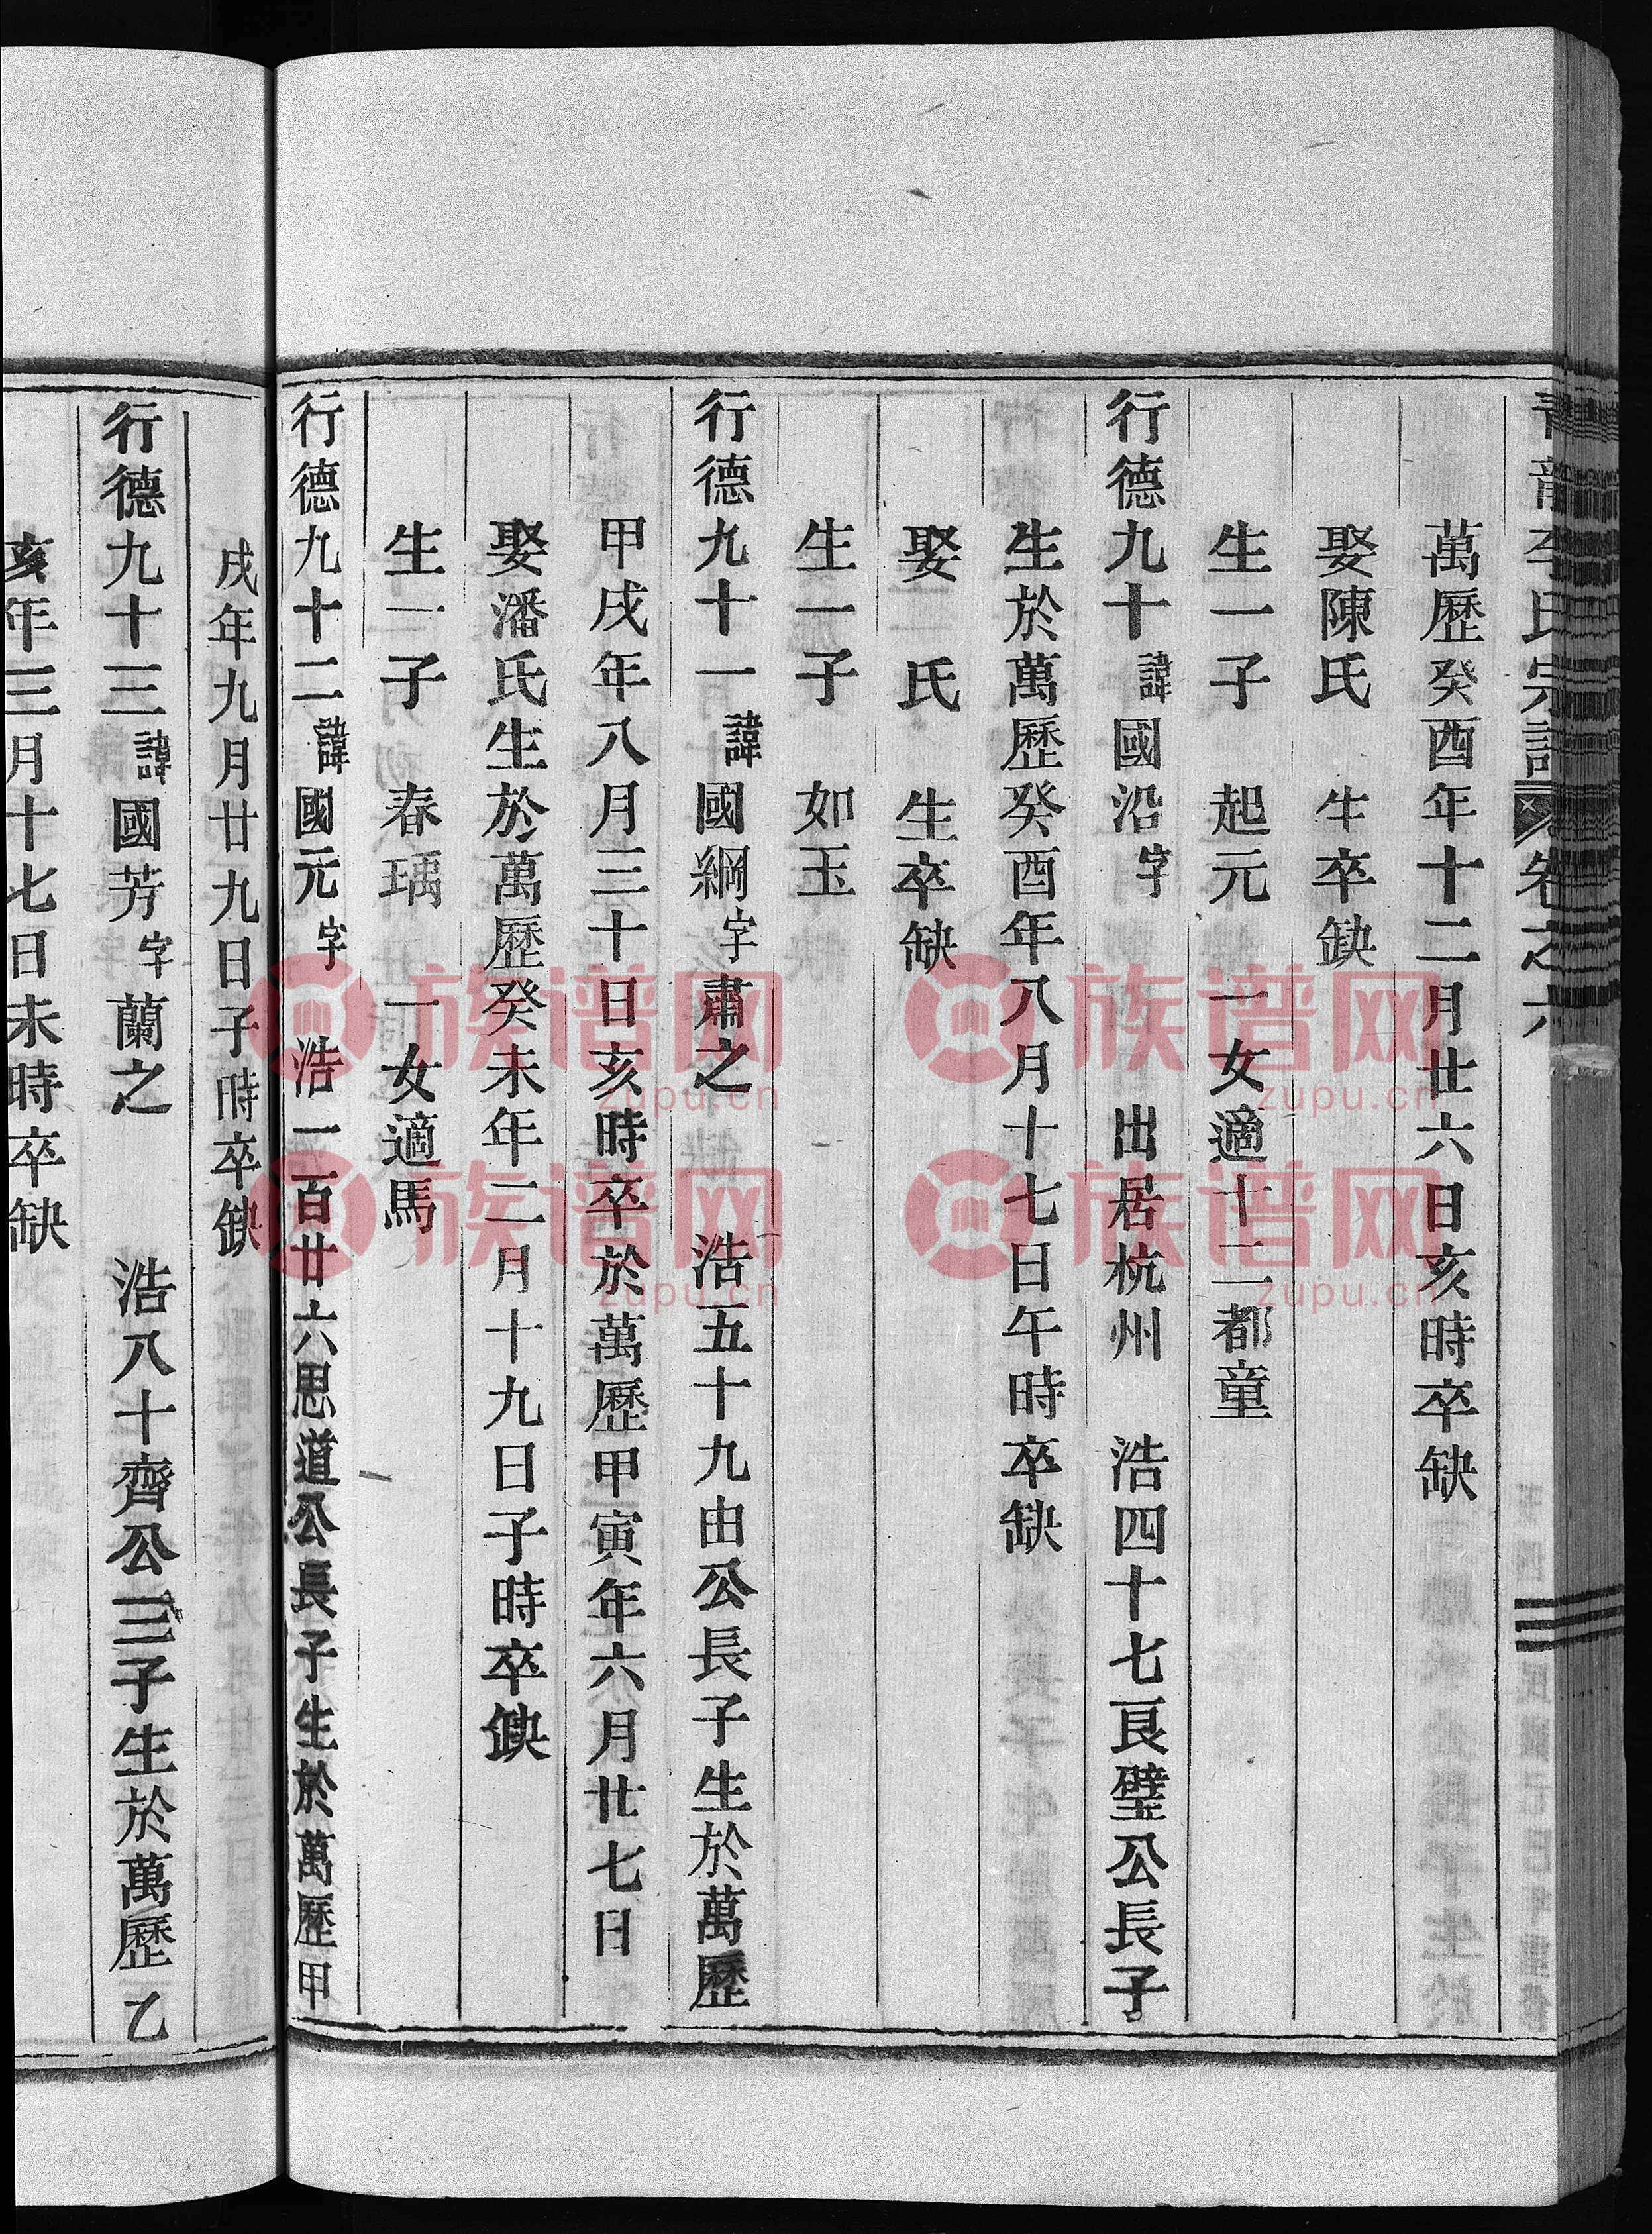 青龍李氏宗譜 卷之六
萬歷癸酉年十二月廿六日亥時卒缺
娶陳氏 生卒缺
生一子 起元 一女適十二都童
行德九十 諱國沿字 出居杭州 浩四十七艮璧公長子
生於萬歷癸酉年八月十七日午時卒缺
娶 氏 生卒缺
生一子 如玉
行德九十一 諱國綱字肅之 浩五十九由公長子生於萬歷
甲戌年八月三十日亥時卒於萬歷甲寅年六月廿七日
娶潘氏生於萬歷癸未年二月十九日子時卒缺
生一子 春瑀 一女適馬
行德九十二 諱國元字 浩一百廿六思道公長子生於萬歷甲
戌年九月廿九日子時卒缺
行德九十三 諱國芳字蘭之 浩八十齊公三子生於萬歷乙
亥年三月十七日未時卒缺
族谱网
zupu.cn
族谱网
zupu.cn
族谱网
zupu.cn
族谱网
zupu.cn